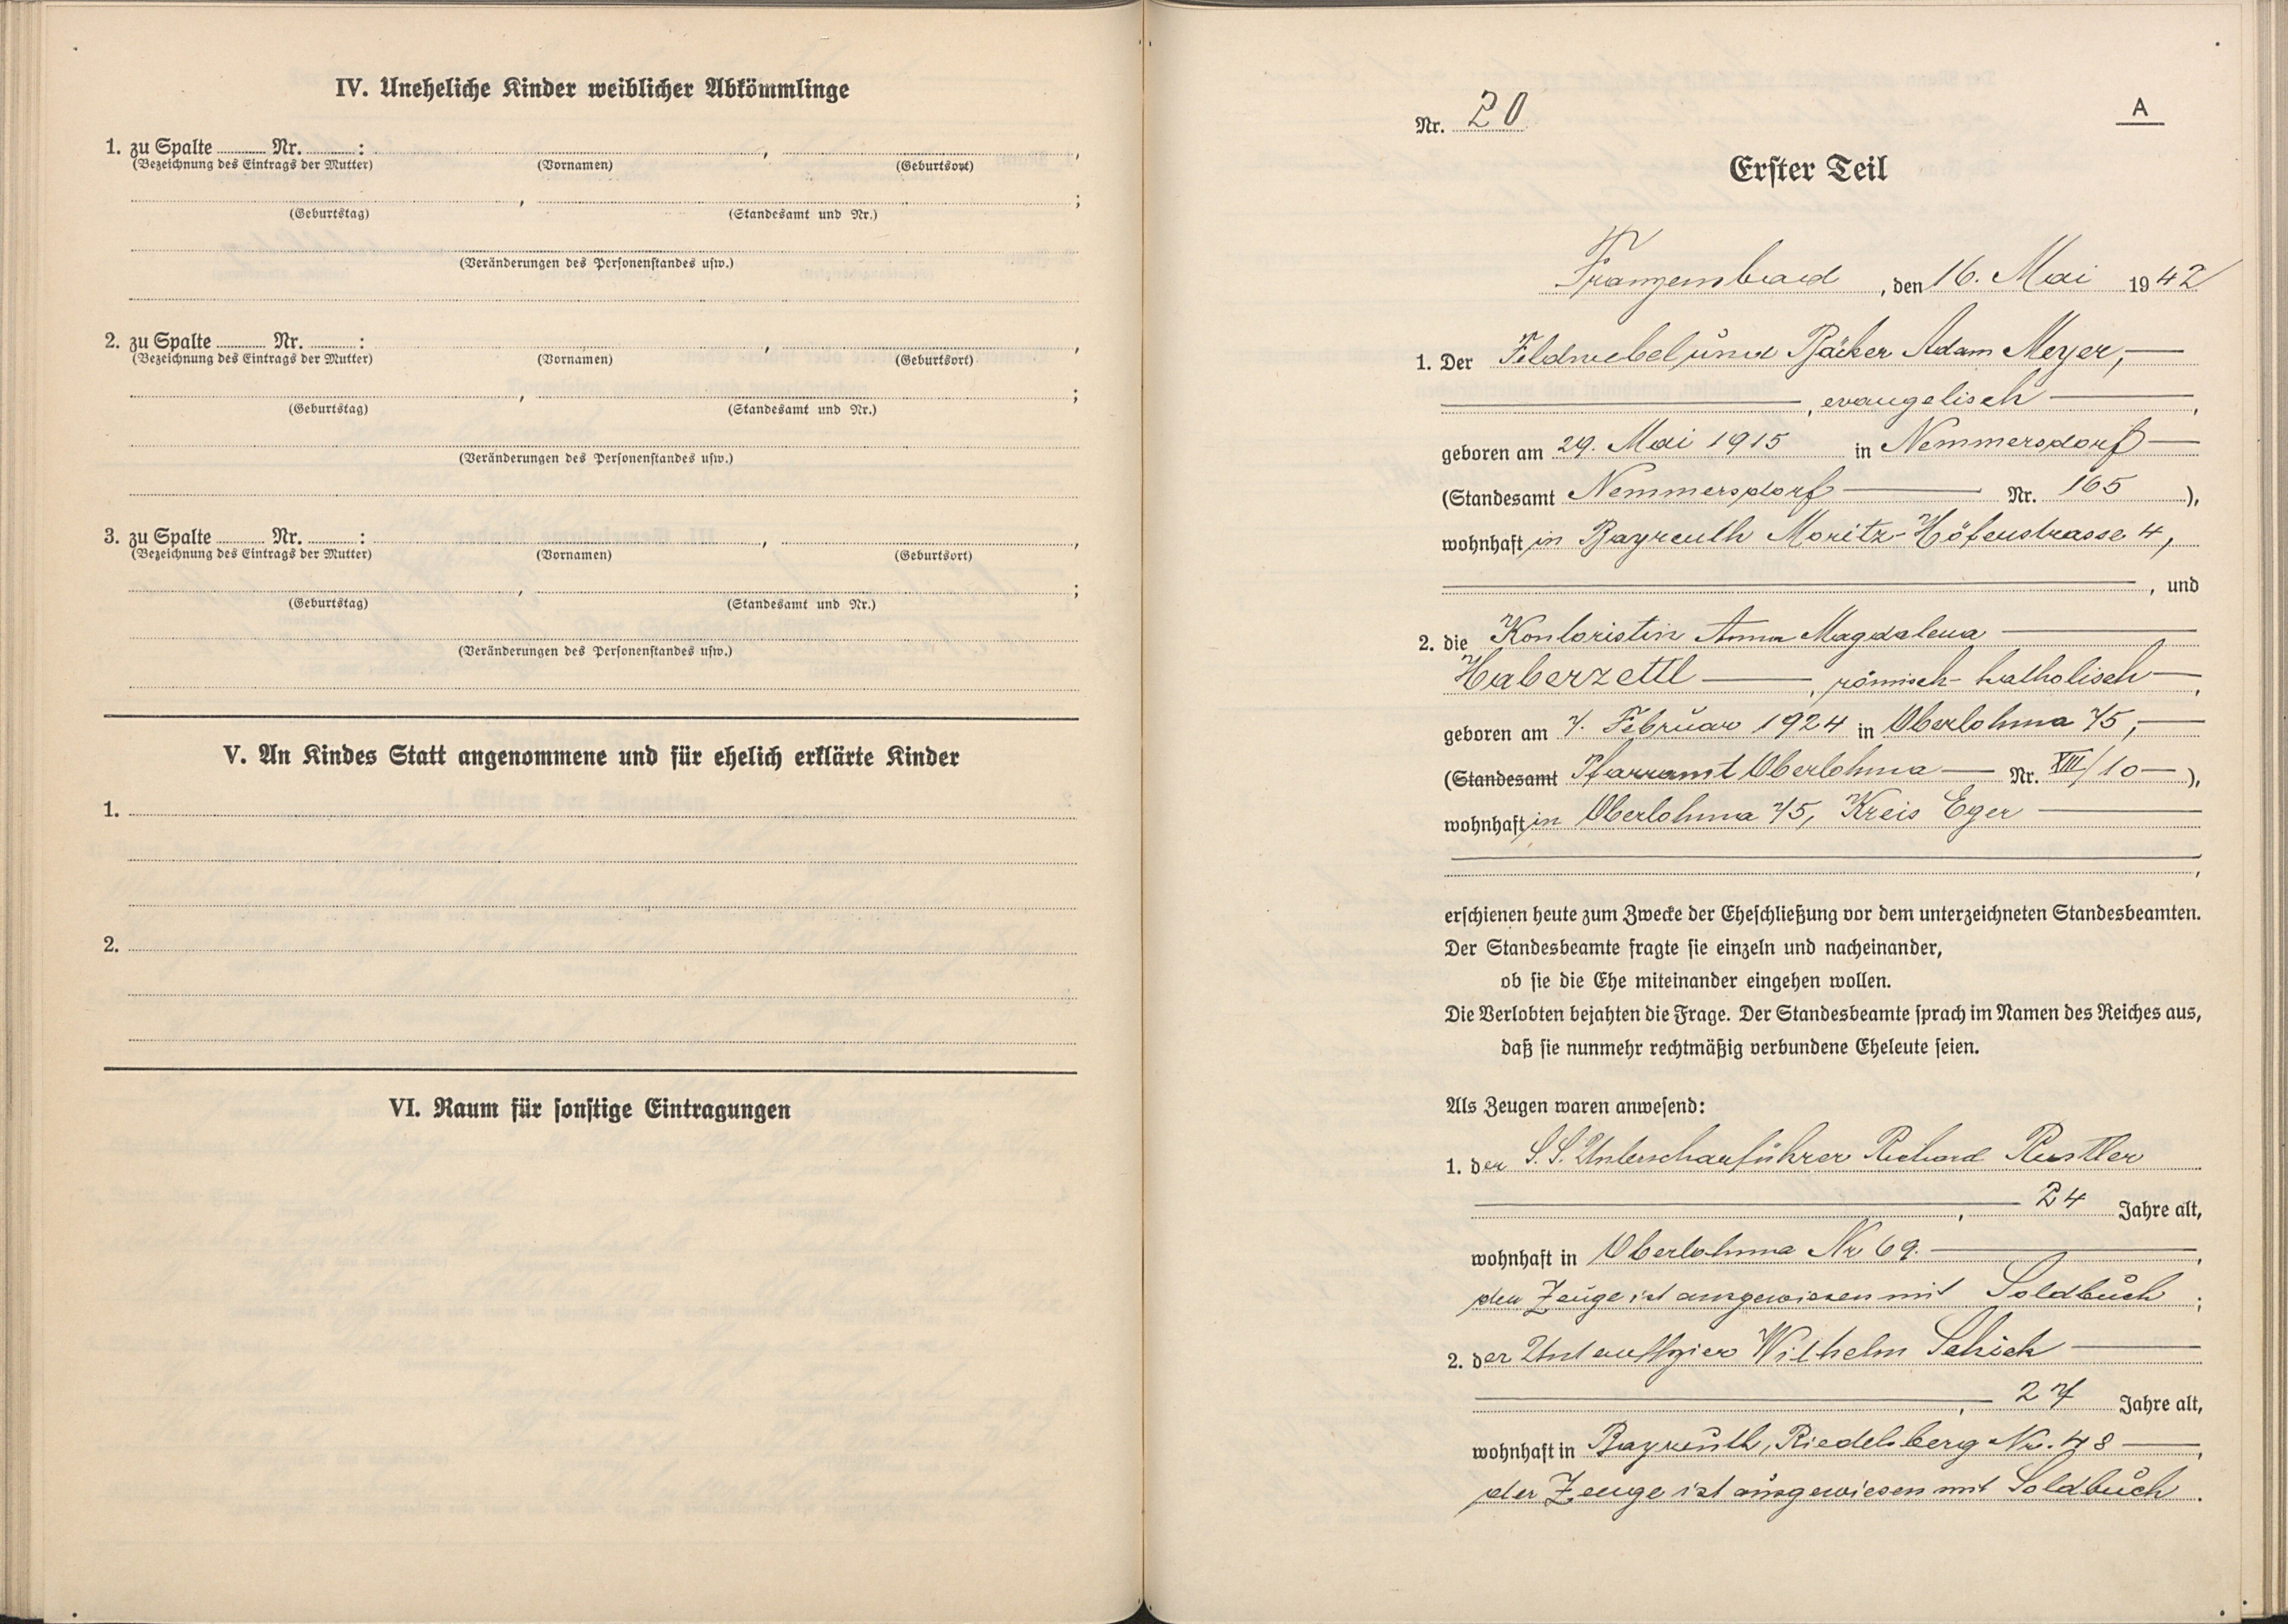 IV. Uneheliche Kinder weiblicher Abkömmlinge
1. zu Spalte ........ Nr. ........ : , ,
(Bezeichnung des Eintrags der Mutter) (Vornamen) (Geburtsort)
, ;
(Geburtstag) (Standesamt und Nr.)
(Veränderungen des Personenstandes usw.)
2. zu Spalte ........ Nr. ........ : , ,
(Bezeichnung des Eintrags der Mutter) (Vornamen) (Geburtsort)
, ;
(Geburtstag) (Standesamt und Nr.)
(Veränderungen des Personenstandes usw.)
3. zu Spalte ........ Nr. ........ : , ,
(Bezeichnung des Eintrags der Mutter) (Vornamen) (Geburtsort)
, ;
(Geburtstag) (Standesamt und Nr.)
(Veränderungen des Personenstandes usw.)
V. An Kindes Statt angenommene und für ehelich erklärte Kinder
1.
2.
VI. Raum für sonstige Eintragungen
Nr. 20 A
Erster Teil
Franzensbad, den 16. Mai 1942
1. Der Feldwebel und Bäcker Adam Meyer,
, evangelisch ,
geboren am 29. Mai 1915 in Nemmersdorf
(Standesamt Nemmersdorf Nr. 165 ),
wohnhaft in Bayreuth Moritz-Höfenstrasse 4,
, und
2. die Kontoristin Anna Magdalena
Haberzettl , römisch-katholisch ,
geboren am 7. Februar 1924 in Oberlohma 75,
(Standesamt Pfarramt Oberlohma Nr. XIII/10 ),
wohnhaft in Oberlohma 75, Kreis Eger
,
erschienen heute zum Zwecke der Eheschließung vor dem unterzeichneten Standesbeamten.
Der Standesbeamte fragte sie einzeln und nacheinander,
ob sie die Ehe miteinander eingehen wollen.
Die Verlobten bejahten die Frage. Der Standesbeamte sprach im Namen des Reiches aus,
daß sie nunmehr rechtmäßig verbundene Eheleute seien.
Als Zeugen waren anwesend:
1. der S.S. Unterscharführer Richard Rustler
, 24 Jahre alt,
wohnhaft in Oberlohma Nr 69. ,
der Zeuge ist ausgewiesen mit Soldbuch ;
2. der Unteroffizier Wilhelm Schick
, 27 Jahre alt,
wohnhaft in Bayreuth, Riedelsberg Nr. 78 ,
der Zeuge ist ausgewiesen mit Soldbuch .